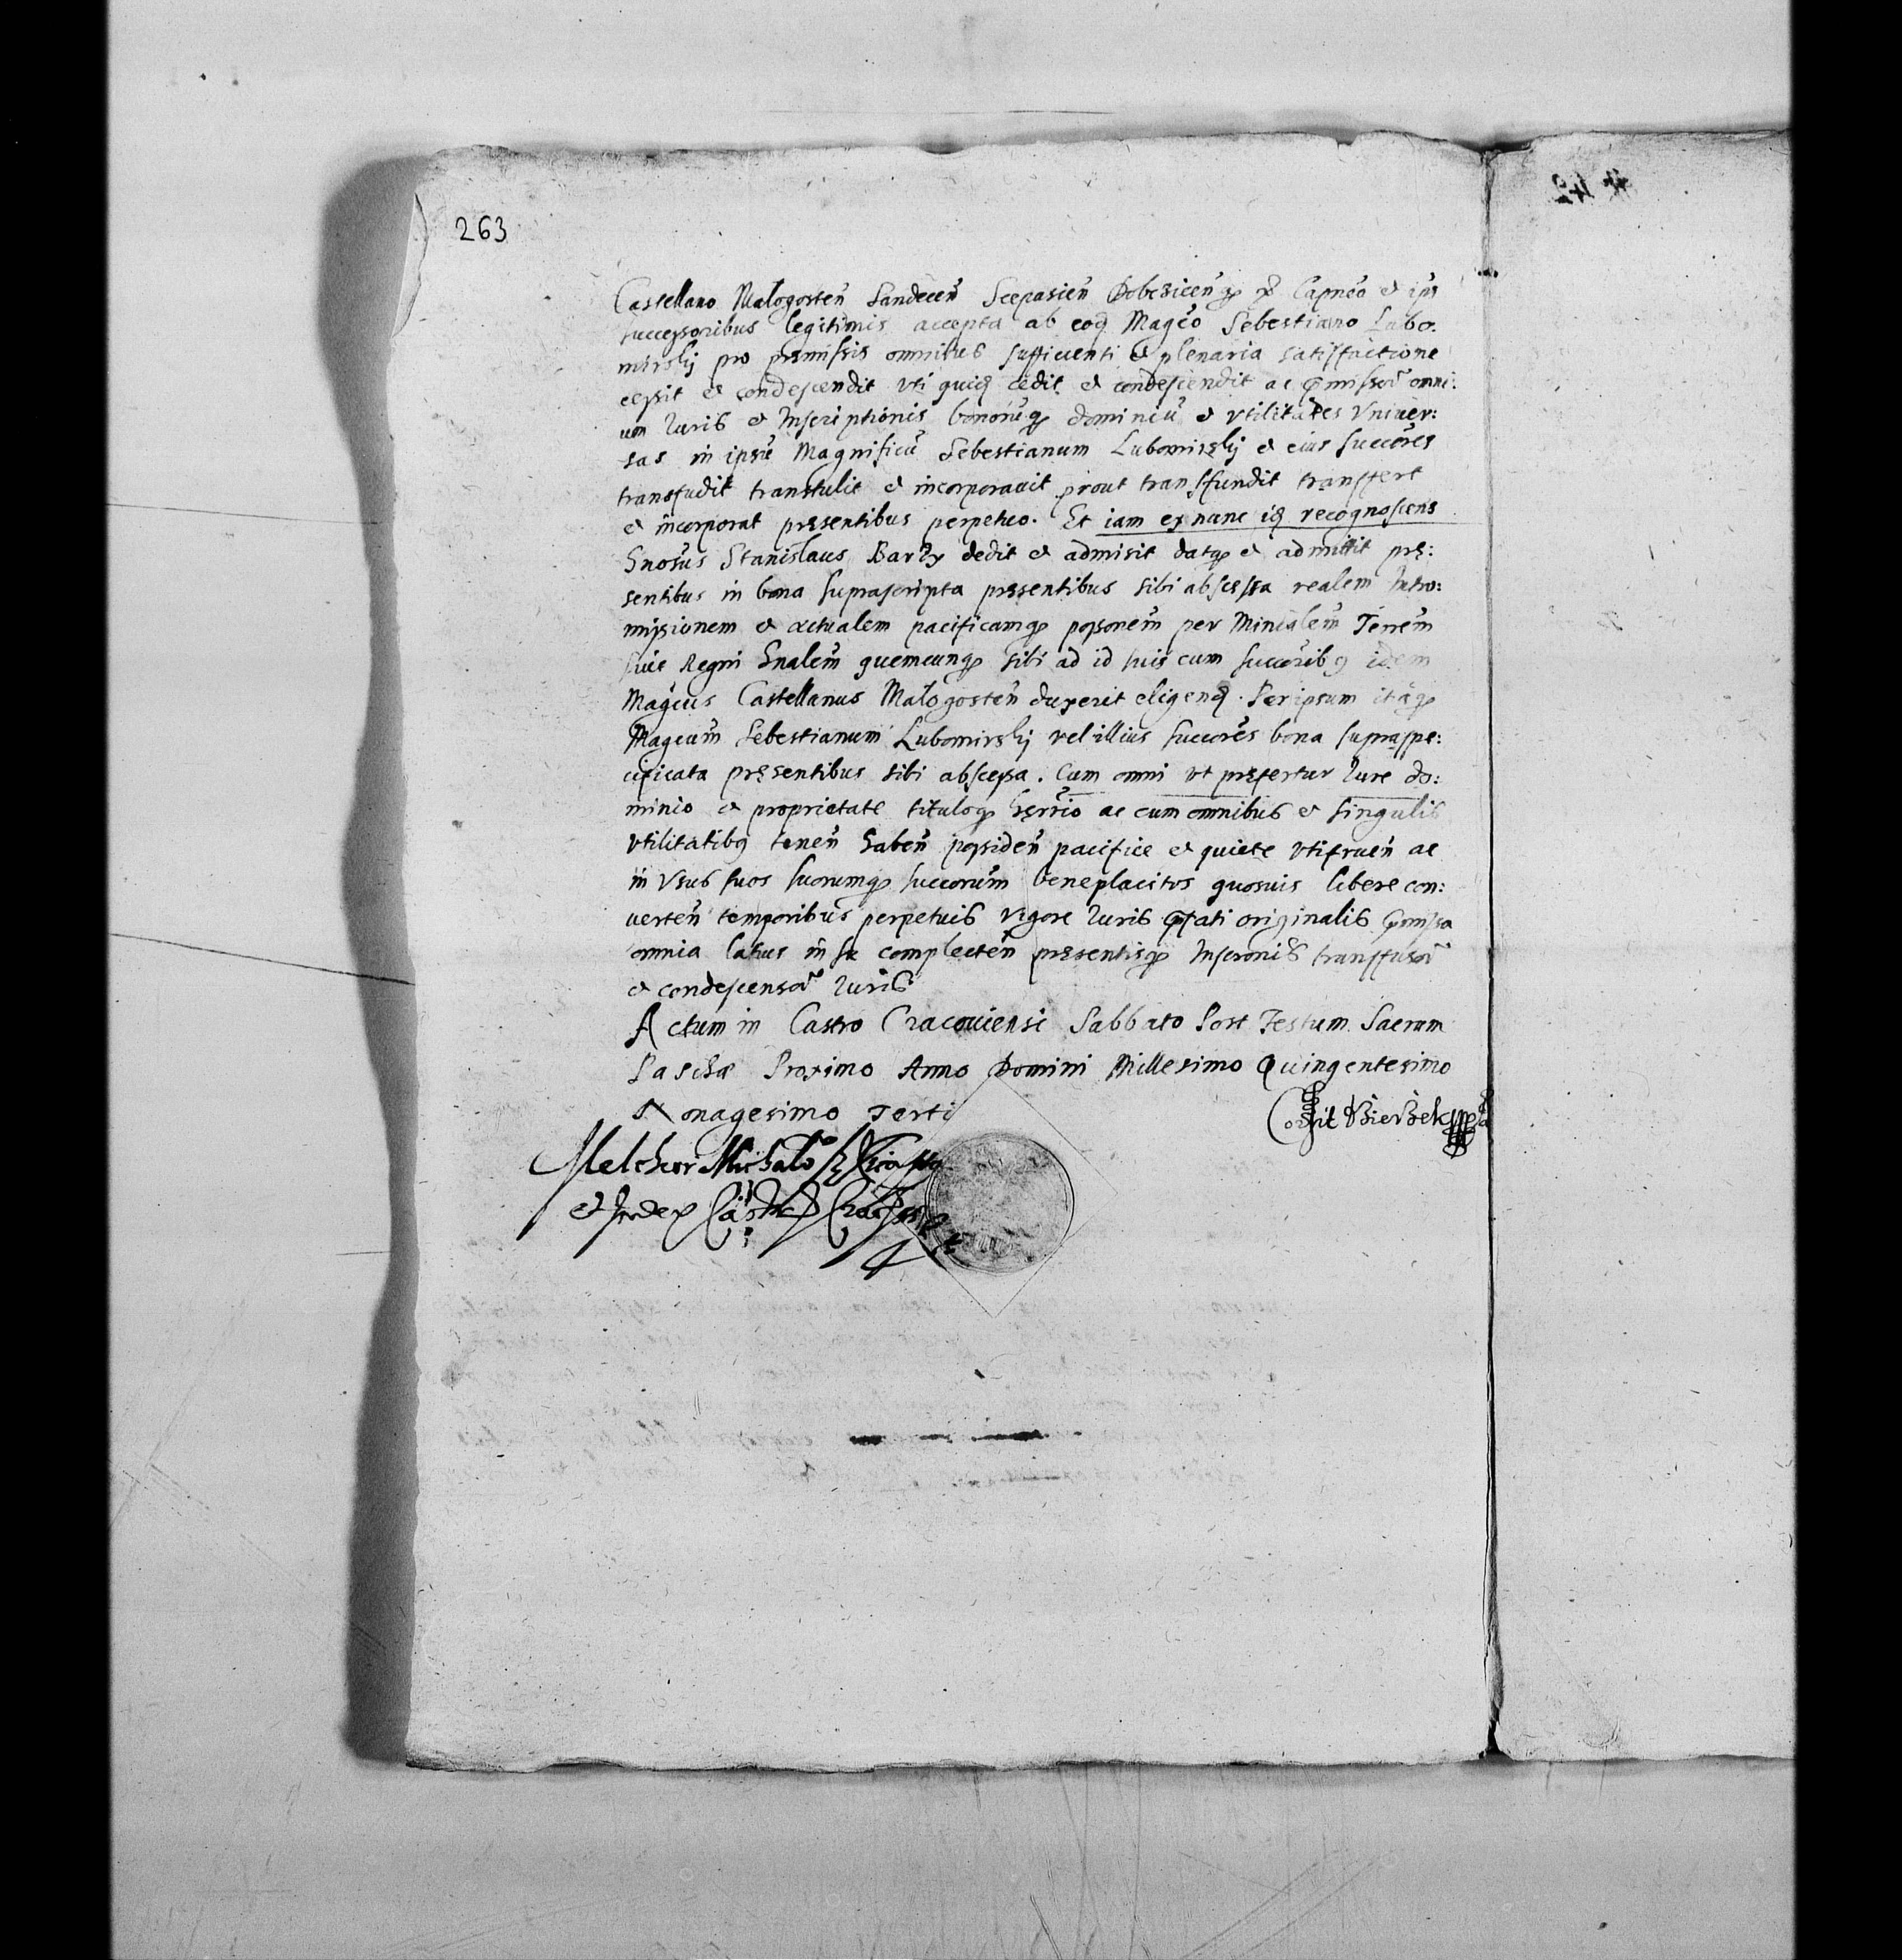 263
Castellano Małogosteñ Sandeceñ Scepasieñ Dobcziceñq & Capneo et ip̃s
successoribus legitimis accepta ab eod Magco Sebestiano Lubo:
mirskij pro premissis omnibus sufficienti et plenaria satisfactione
cessit et condescendit vti quid cedit et condescendit ac premissor omni:
um Iuris et Inscriptionis bonorũq dominiũ et vtilitates Vniver:
sas in ipsũ Magnificũ Sebestianum Lubomirskij et eius succores
transfudit transtulit et incorporauit prout transffundit transffert
et incorporat pręsentibus perpetuo. Et iam ex nunc id recognoscens
Gnosus Stanislaus Barzy dedit et admisit datq et admittit prę:
sentibus in bona suprascripta pręsentibus sibi abscessa realem Intro:
missionem et actualem pacificamq possonem per Minialem Terrem
siue Regni Gnalem quemcunq sibi ad id suis cum succoribq idem
Magcus Castellanus Małogosteñ duxerit eligend. Per ipsum itaq
Magcum Sebestianum Lubomirskij vel illius succores bona supraspe:
cificata pręsentibus sibi abscessa. Cum omni vt pręfertur Iure do:
minio et proprietate tituloq hęrrio ac cum omnibus et singulis
vtilitatibq teneñ habeñ possideñ pacifice et quiete vtifrueñ ac
in Vsus suos suorumq succorum beneplacitos quosuis libere con:
uerteñ temporibus perpetuis vigore Iuris pfati originalis pmissa
omnia latius in se complecteñ pręsentisq Inscronis transffusor
et condescensor Iuris
Actum in Castro Cracouiensi Sabbato Post Festum Sacrum
Paschæ Proximo Anno Domini Millesimo Quingentesimo
Nonagesimo Terti
Corxit
Melchior Michalo
et Judex Castr Crac